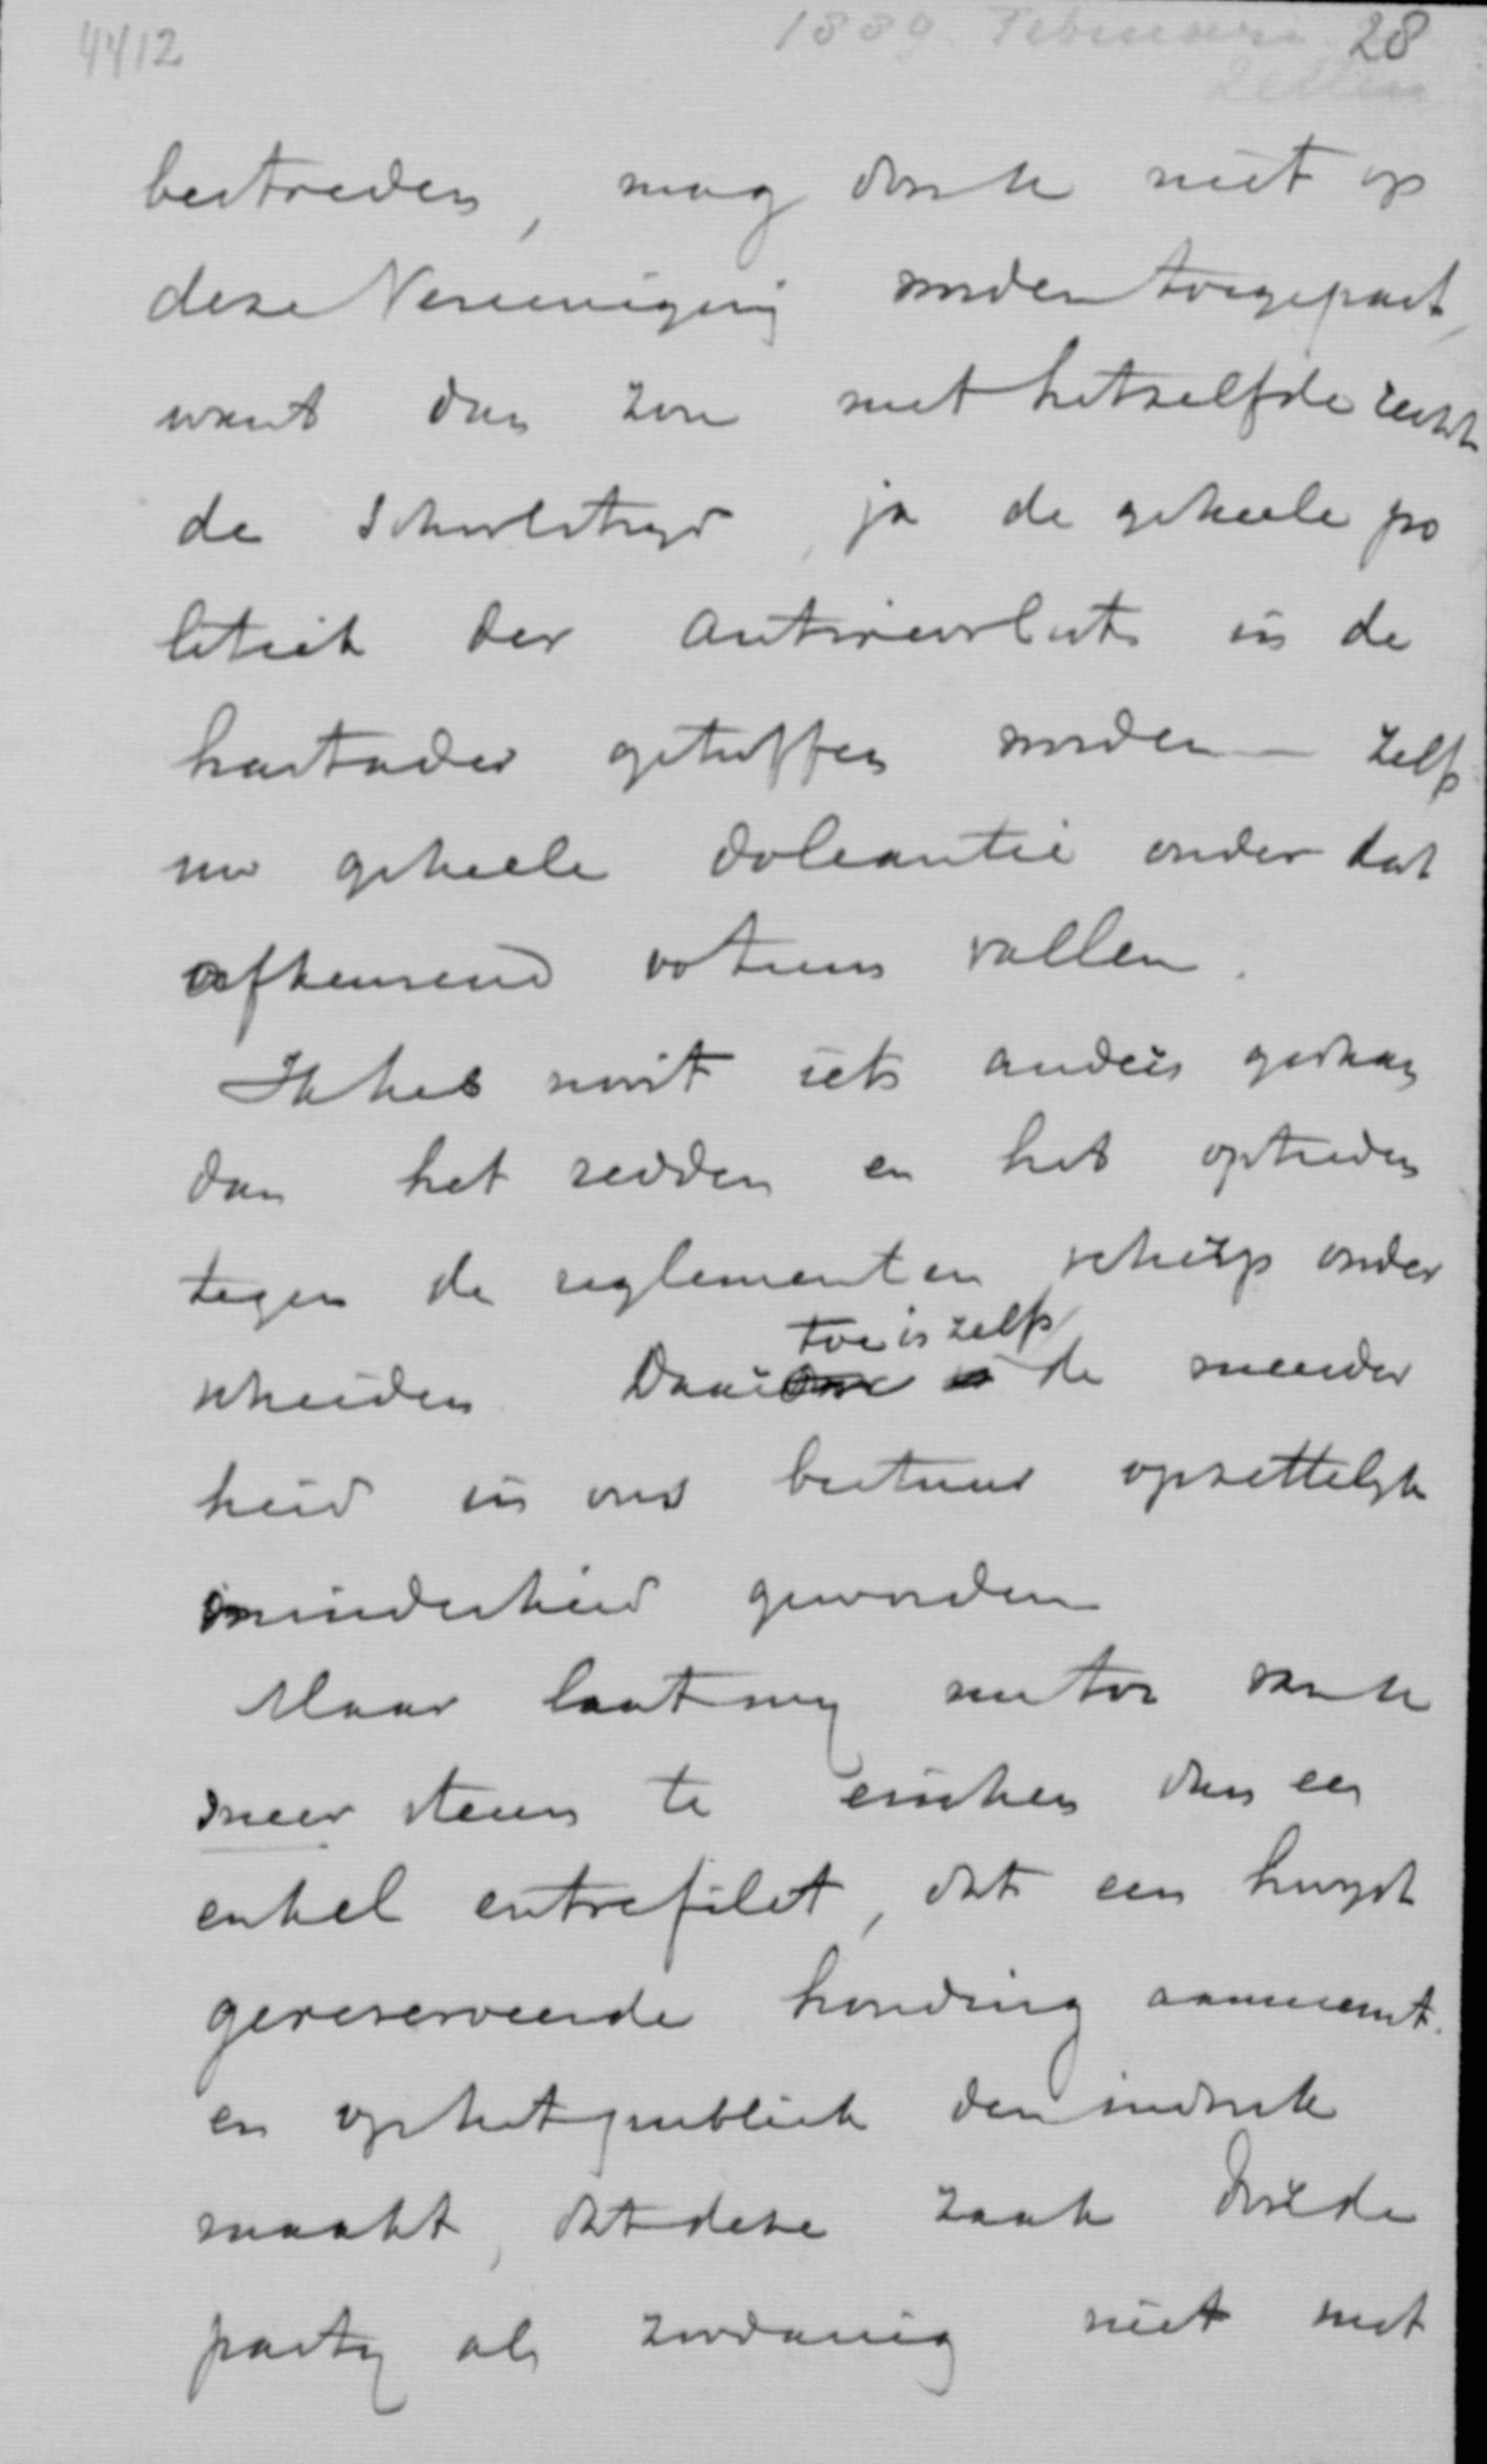 4412 1889 Februari 28
bestreden, mag ook niet op
deze Vereeniging worden toegepast,
want dan zou met hetzelfde recht
de Schoolstrijd, ja de geheele po
litiek der Antirevolut. in de
hartader getroffen worden – zelfs
uw geheele doleantie onder dat
afkeurend votum vallen.
Ik heb nooit iets anders gedaan
dan het redden en het optreden
tegen de reglementen scherp onder
scheiden. Daar
toe is zelfs
de meerder
heid in ons bestuur opzettelijk
minderheid geworden
Maar laat mij nu toe ook
meer steun te eischen dan een
enkel entrefilet, dat een hoogst
gereserveerde houding aanneemt.
en op het publiek den indruk
maakt, dat deze zaak de
partij als zoodanig niet met